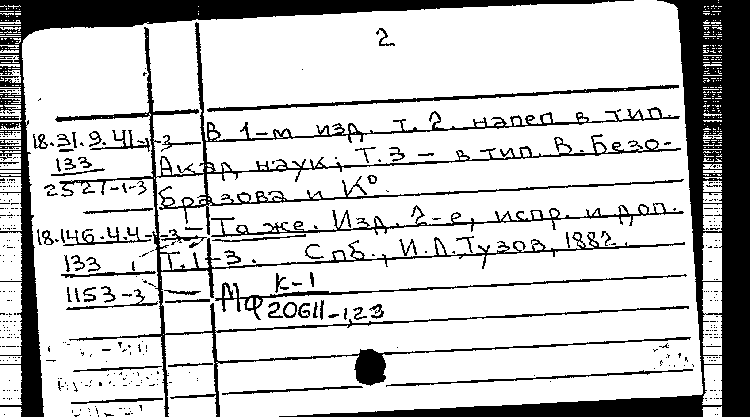 2
18.31.9.41-1-3 В 1-м изд. т. 2. напеп в тип.
133 Акад. наук; Т. 3 – в тип. В. Безо-
2527-1-3 бразова и К°.
18.146.4.4-1-3 – То же. Изд. 2-е, испр. и доп.
133 Т. 1-3. Спб., И.Л. Тузов, 1882.
1153-3 МФ К-1
20611-1,2,3